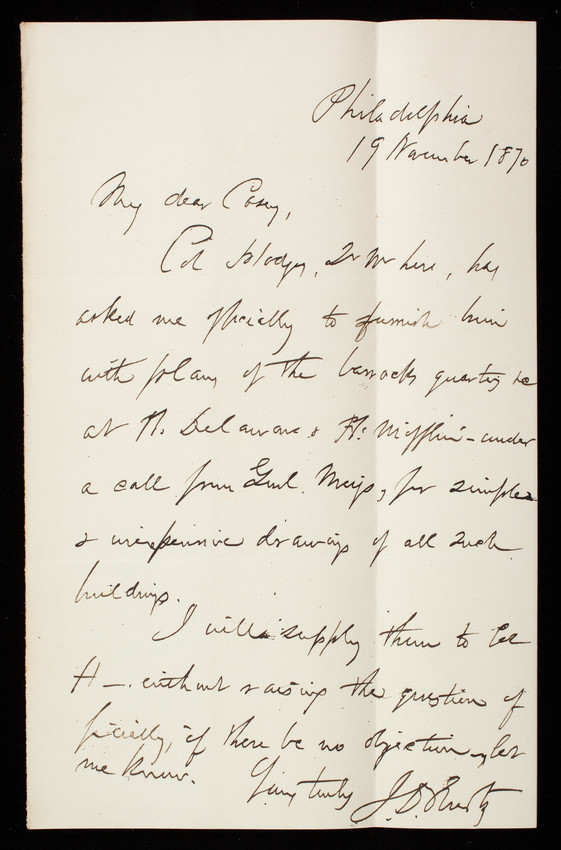 Philadelphia
19 November 1870
My dear Casey,
Col Hodges, Qr Mr here, has
asked me officially to furnish him
with plans of the barracks quarters &c
at Ft. Delaware & Ft. Mifflin - under
a call from Genl. Meigs, for simple
& inexpensive drawings of all such
buildings.
I will supply them to Col
H—. without raising the question of
ficially, if there be no objection - let
me know. Yours truly J.D. Kurtz